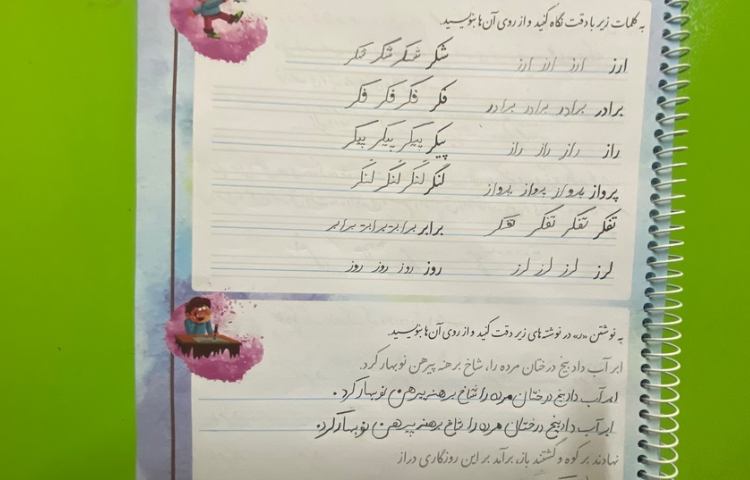 به کلمات زیر با دقت نگاه کنید و از روی آن ها بنویسید
ارز ارز ارز ارز شکر شکر شکر شکر
برادر برادر برادر برادر فکر فکر فکر فکر
راز راز راز راز پیکر پیکر پیکر پیکر
پرواز پرواز پرواز پرواز لنگر لنگر لنگر لنگر
تفکر تفکر تفکر برابر برابر برابر برابر
لرز لرز لرز لرز روز روز روز روز
به نوشتن «ر» در نوشته های زیر دقت کنید و از روی آن ها بنویسید
ابر آب داد بیخ درختان مرده را، شاخ برهنه پیرهن نوبهار کرد.
ابر آب داد بیخ درختان مرده را شاخ برهنه پیرهن نوبهار کرد.
ابر آب داد بیخ درختان مرده را شاخ برهنه پیرهن نوبهار کرد.
نهادند بر کوه و گشتند باز، برآمد بر این روزگاری دراز